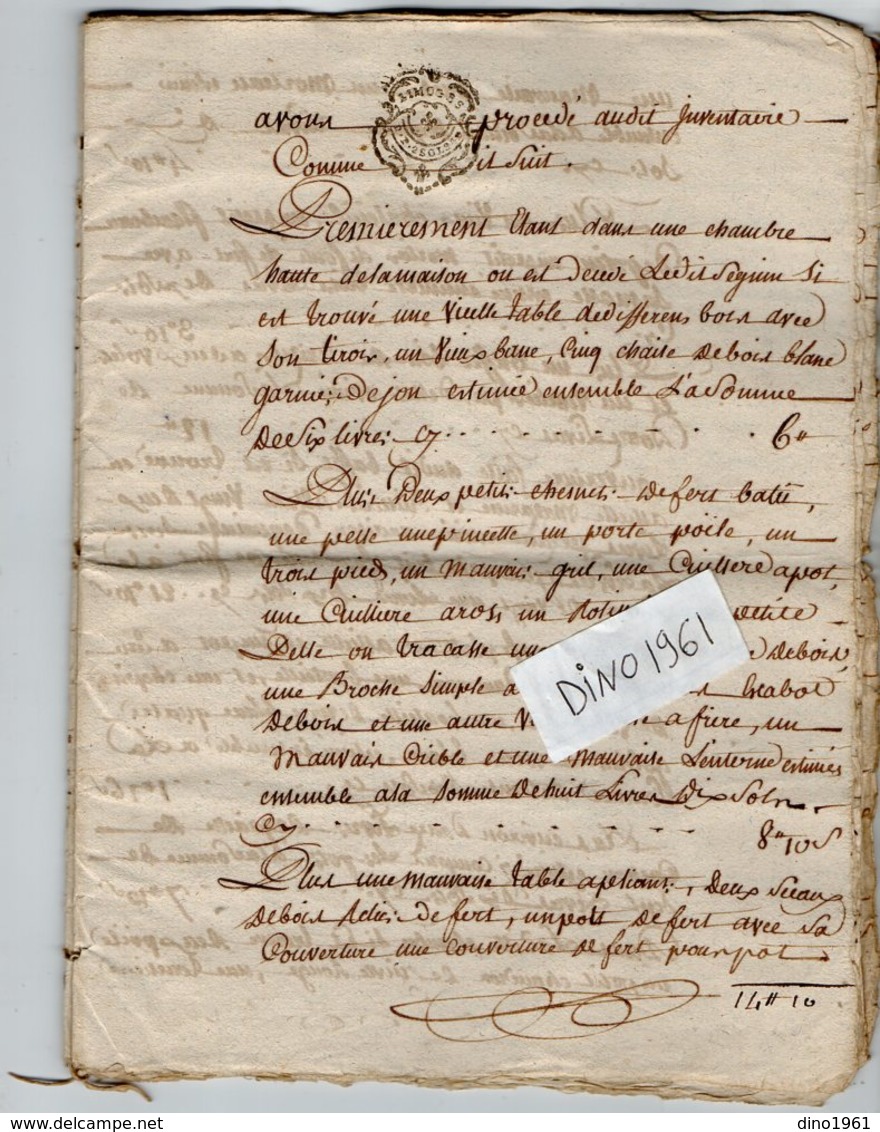 LIMOGES
avons procedé audit Inventaire
Comme il suit.
Premierement Etant dans une chambre
haute delamaison ou est decedé Ledit Seguin si
est trouvé une vieille table dedifferens bois avec
son tiroir, un vieux banc, Cinq chaise debois blanc
garnie; De jon estimée ensemble La somme
De six livres cy 6#
Plus Deux petits chesnets de fert batü,
une pelle unepincette, un porte poile, un
trois pieds, un Mauvais gril, une Cuillere apot,
une Cuilliere aros; un petite
Delle ou tracasse une debois,
une Broche simple
Debois et une autre afrire, un
Mauvais Crible et une mauvaise Lenterne estimées
ensemble ala somme De huit Livres Dix sols
Cy 8# 10 s
Plus une mauvaise table apliants, Deux seaux
Debois Reliés de fert, un pott de fert avec sa
Couverture une couverture de fert pour pot
14# 10
DiNO1961
dino1961
delcampe.net